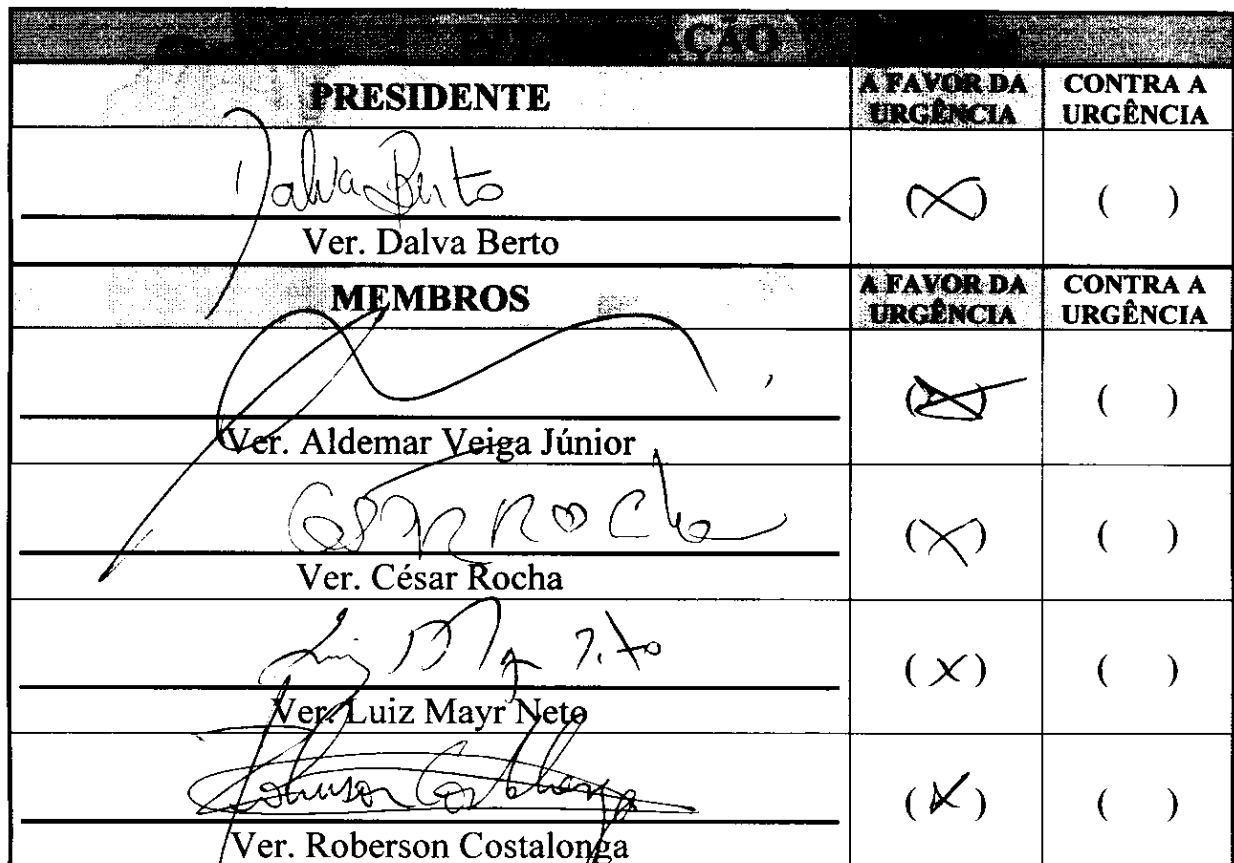 PRESIDENTE A FAVOR DA URGÊNCIA CONTRA A URGÊNCIA
Dalva Berto (X) ( )
Ver. Dalva Berto
MEMBROS A FAVOR DA URGÊNCIA CONTRA A URGÊNCIA
(X) ( )
Ver. Aldemar Veiga Júnior
César Rocha (X) ( )
Ver. César Rocha
(X) ( )
Ver. Luiz Mayr Neto
Roberson Costalonga (X) ( )
Ver. Roberson Costalonga